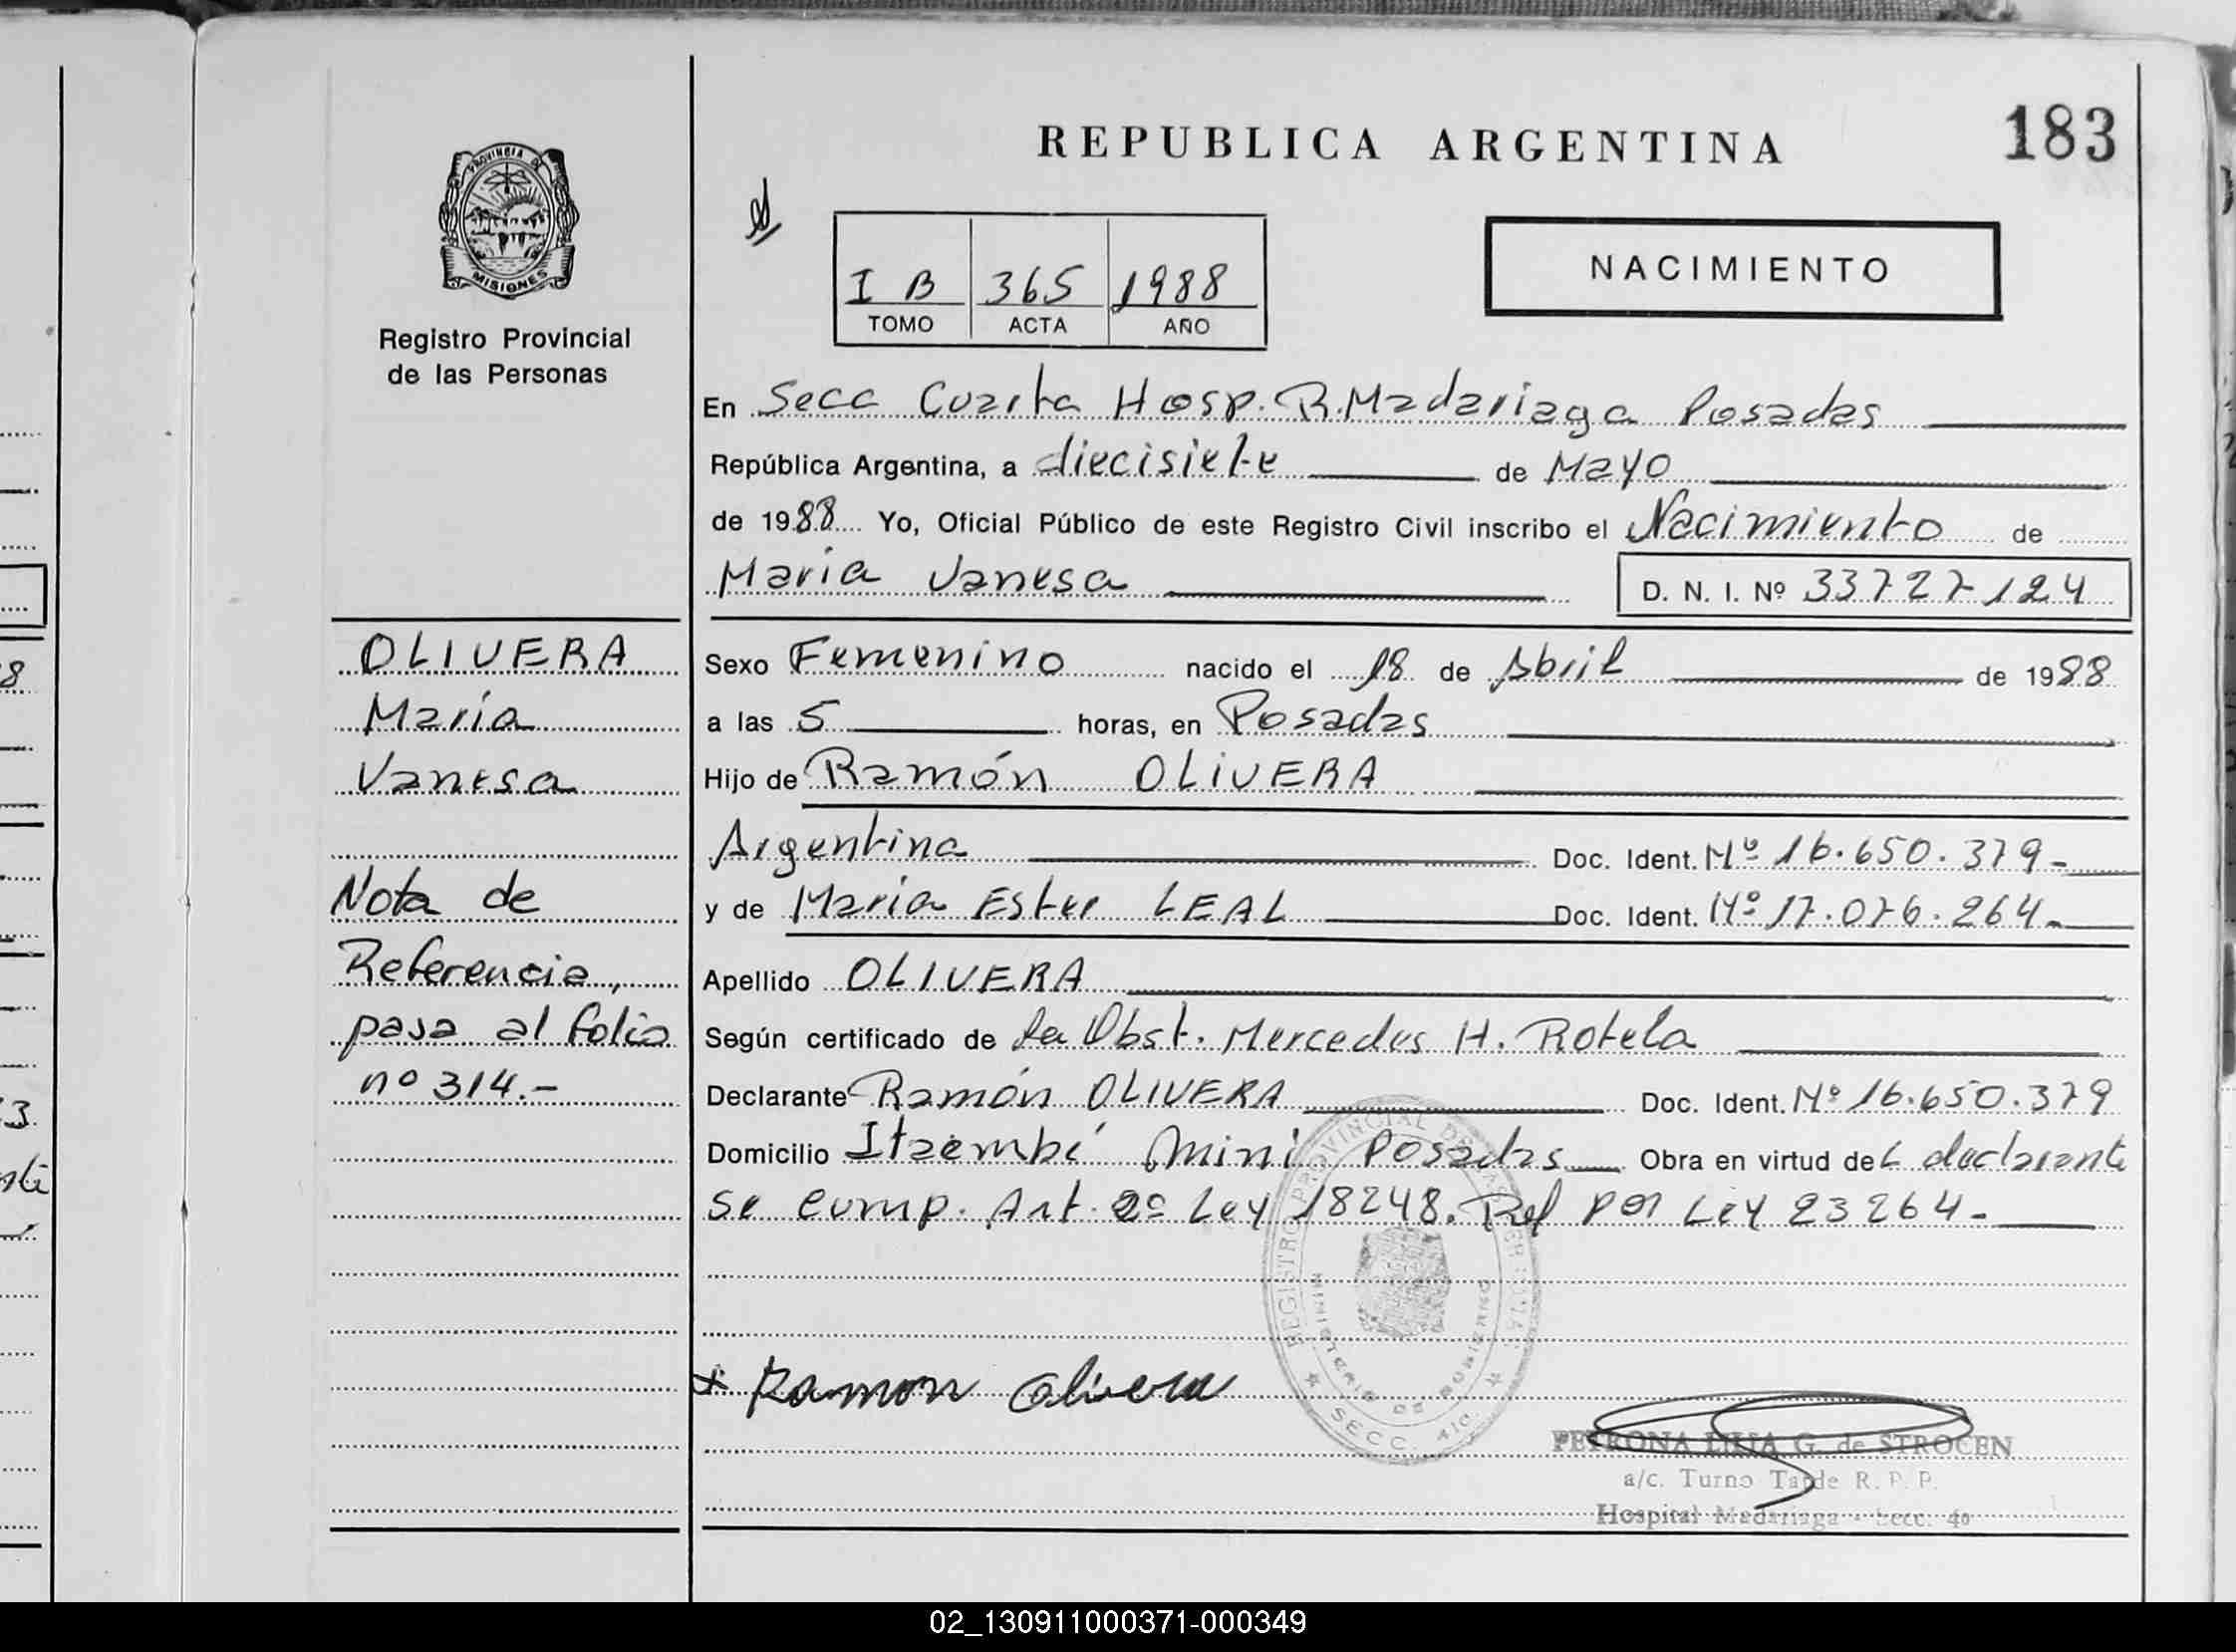 REPUBLICA ARGENTINA
183
PROVINCIA DE
MISIONES
Registro Provincial
de las Personas
I B 365 1988
TOMO ACTA AÑO
NACIMIENTO
En Secc Cuarta Hosp. R. Madariaga Posadas
República Argentina, a diecisiete de Mayo
de 1988 Yo, Oficial Público de este Registro Civil inscribo el Nacimiento de
María Vanesa
D. N. I. Nº 33727124
OLIVERA
María
Vanesa
Nota de
Referencia,
pasa al folio
nº 314.-
Sexo Femenino nacido el 18 de Abril de 1988
a las 5 horas, en Posadas
Hijo de Ramón OLIVERA
Argentina Doc. Ident. Nº 16.650.379-
y de María Ester LEAL Doc. Ident. Nº 17.076.264-
Apellido OLIVERA
Según certificado de la Obst. Mercedes H. Rotela
Declarante Ramón OLIVERA Doc. Ident. Nº 16.650.379
Domicilio Itaembé Miní Posadas Obra en virtud del declarante
se cump. Art. 2º Ley 18248. Ref por Ley 23264-
REGISTRO PROVINCIAL DE LAS PERSONAS
MINISTERIO DE GOBIERNO
SECC. 4ta.
Ramon Olivera
PETRONA LILIA G. de STROCEN
a/c. Turno Tarde R. P. P.
Hospital Madariaga - Secc. 4a
02_130911000371-000349